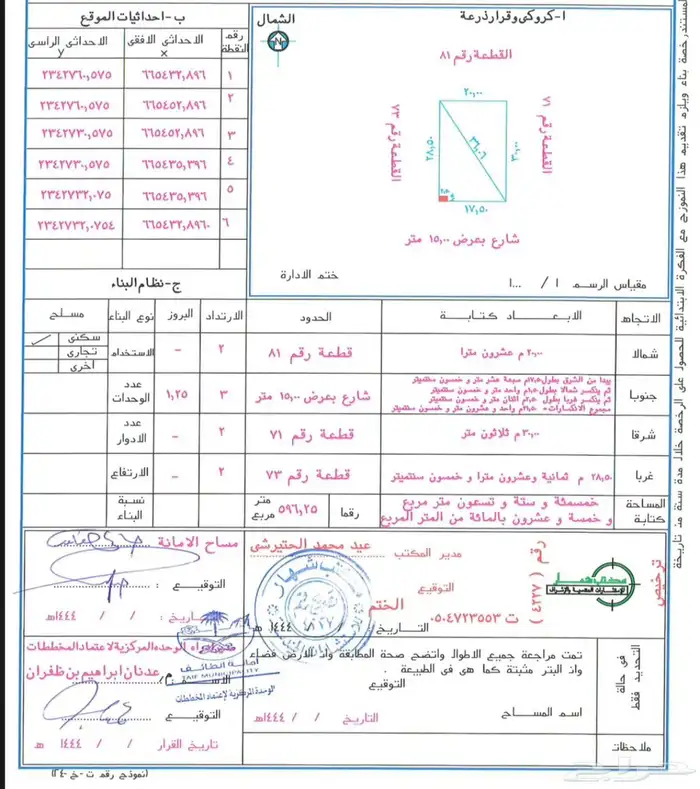 أ- كروكي وقرار ذرعة
الشمال
N
القطعة رقم ٨١
٢٠,٠٠
القطعة رقم ٧١
القطعة رقم ٧٣
٢٨,٥٠
٣٦,٠٦
٣٠,٠٠
١٧,٥٠
شارع بعرض ١٥,٠٠ متر
ختم الادارة
مقياس الرسم ١ / ...١
ب - احداثيات الموقع
رقم النقطة
الاحداثى الافقى x
الاحداثى الراسى y
١ ٦٦٥٤٣٢,٨٩٦ ٢٣٤٢٧٦٠,٥٧٥
٢ ٦٦٥٤٥٢,٨٩٦ ٢٣٤٢٧٦٠,٥٧٥
٣ ٦٦٥٤٥٢,٨٩٦ ٢٣٤٢٧٣٠,٥٧٥
٤ ٦٦٥٤٣٥,٣٩٦ ٢٣٤٢٧٣٠,٥٧٥
٥ ٦٦٥٤٣٥,٣٩٦ ٢٣٤٢٧٣٢,٠٧٥
٦ ٦٦٥٤٣٢,٨٩٦٠ ٢٣٤٢٧٣٢,٠٧٥٤
ج - نظام البناء
الاتجاه الابعاد كتابة الحدود الارتداد البروز نوع البناء مسلح
شمالا ٢٠,٠٠م عشرون مترا قطعة رقم ٨١ ٢ - الاستخدام
سكنى
تجارى
أخرى
جنوبا
يبدا من الشرق بطول ١٧,٥م سبعة عشر متر و خمسون سنتميتر
ثم ينكسر شمالا بطول ١,٥م واحد متر و خمسون سنتميتر
ثم ينكسر غربا بطول ٢,٥م اثنان متر و خمسون سنتميتر
مجموع الانكسارات= ٢١,٥م واحد و عشرون متر و خمسون سنتميتر
شارع بعرض ١٥,٠٠ متر ٣ ١,٢٥ عدد الوحدات
شرقا ٣٠,٠٠م ثلاثون متر قطعة رقم ٧١ ٢ - عدد الادوار
غربا ٢٨,٥٠ م ثمانية وعشرون مترا و خمسون سنتميتر قطعة رقم ٧٣ ٢ - الارتفاع
المساحة كتابة
خمسمئة و ستة و تسعون متر مربع
و خمسة و عشرون بالمائة من المتر المربع
رقما ٥٩٦,٢٥ متر مربع
نسبة البناء
ترخيص
رقم ( ٤٢٢٧ )
عيد محمد الحتيرشي
مدير المكتب
التوقيع
الختم
ت ٠٥٠٤٧٢٣٥٥٣
التاريخ / / ١٤٤٤ هـ
مساح الامانة
التوقيع :
تاريخ : / / ١٤٤٤هـ
مدير ادارة الوحده المركزية لاعتماد المخططات
أمانة الطائف
TAIF MUNICIPALITY
الوحدة المركزية لإعتماد المخططات
الاســم : م/ عدنان ابراهيم بن ظفران
التوقيع
تاريخ القرار / / ١٤٤٤ هـ
فى حالة التحديد فقط
تمت مراجعة جميع الاطوال واتضح صحة المطابقة وان الارض فضاء
وان البتر مثبتة كما هى فى الطبيعة .
التوقيع
اسم المساح
التاريخ / / ١٤٤٤هـ
ملاحظات
(نموذج رقم ت-خ-٢٤٠)
حراج